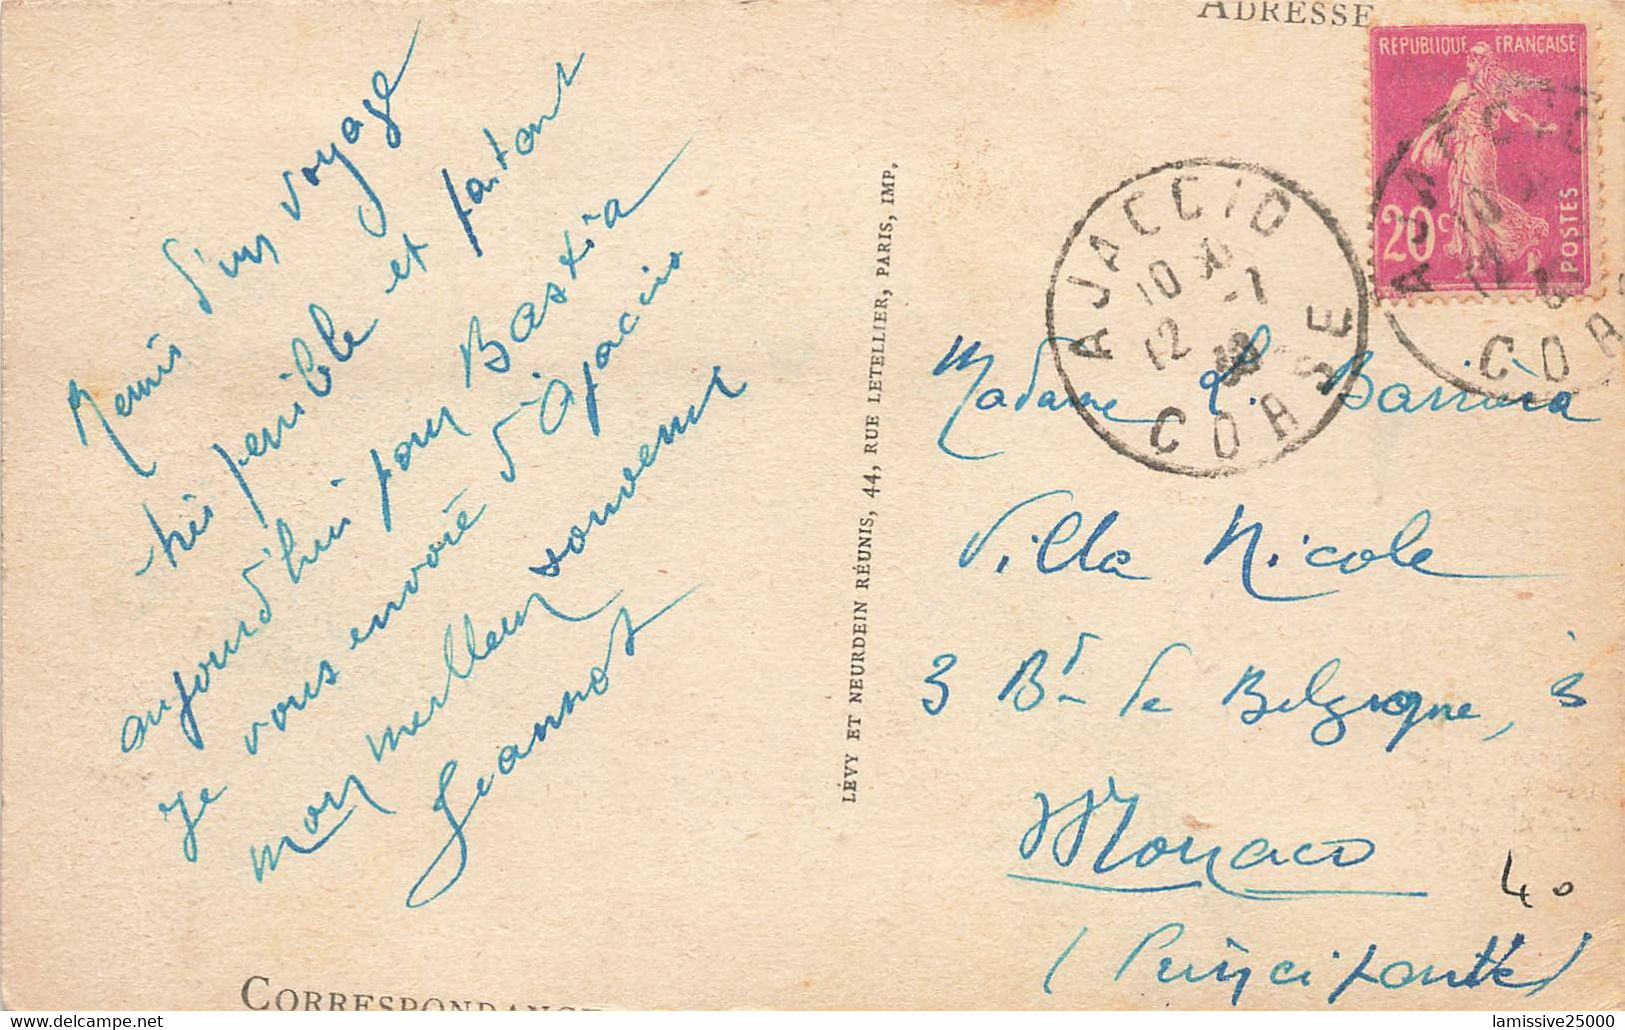 ADRESSE
RÉPUBLIQUE FRANÇAISE
20c
POSTES
AJACCIO
10
12 -7
CORSE
AJACCIO
10
12
COR
Remis d'un voyage
très pénible et partant
aujourd'hui pour Bastia
je vous envoie d'Ajaccio
mon meilleur souvenir
Jeannot
LÉVY ET NEURDEIN RÉUNIS, 44, RUE LETELLIER, PARIS, IMP.
Madame L. Barriera
Villa Nicole
3 Bd de Belgique, 3
Monaco
(Principauté)
40
CORRESPONDANCE
lamissive25000
www.delcampe.net